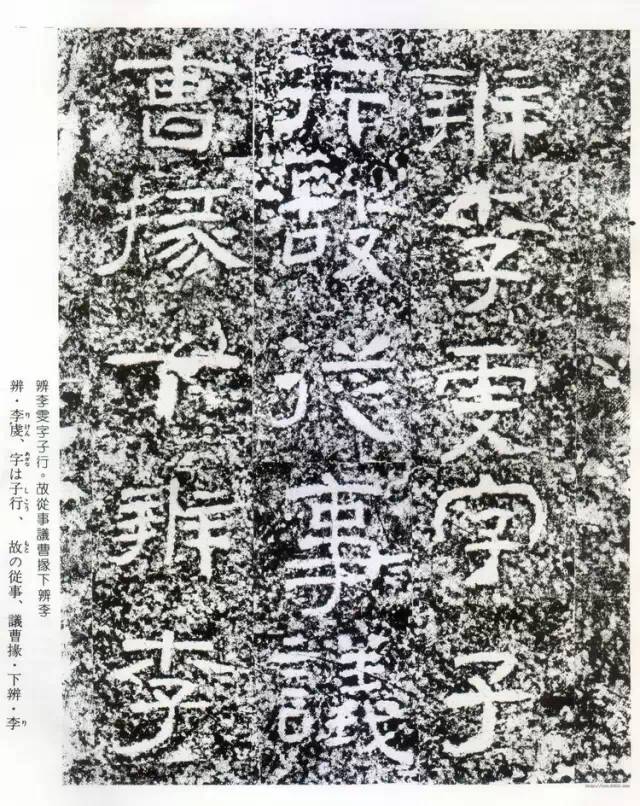 辨李雯字子
行故從事議
曹掾下辨李
辨李雯字子行。故從事議曹掾下辨李
辨・李虔、字は子行、故の従事、議曹掾・下辨・李